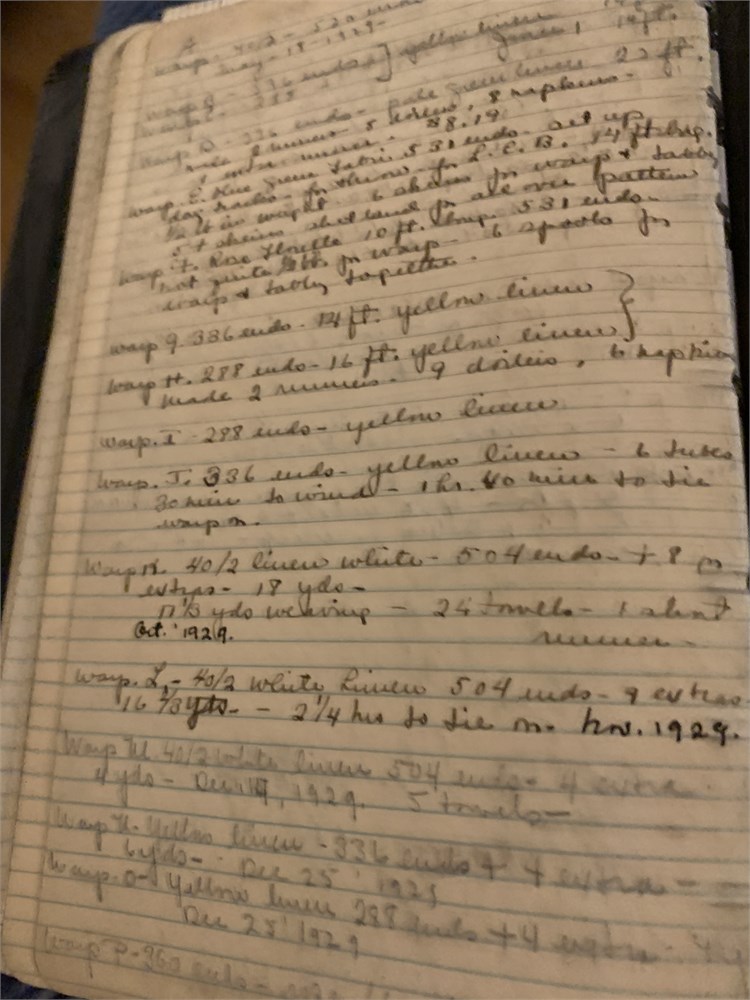 A
Warp. 40/2 - 520 ends
May - 18 - 1929 -
Warp B - 336 ends } yellow linen 14 ft.
Warp C - 288 14 ft.
Warp D - 336 ends - pale green linen 22 ft.
made 2 runners 5 8 napkins -
1 runner. 38.19
Warp. E. Blue green 531 ends - set up
day for throw - for L. C. B. 14 ft long.
in weight. 6 skeins for warp & tabby
5 + skeins shetland for all over pattern
Warp. F. Rose 10 ft. long. 531 ends -
not quite for warp - 6 spools for
warp & tabby together.
Warp G. 336 ends - 14 ft. yellow linen }
Warp H. 288 ends - 16 ft. yellow linen }
made 2 runners - 9 doilies, 6 napkins
Warp. I - 288 ends - yellow linen
Warp. J. 336 ends - yellow linen - 6 tubes
30 min to wind - 1 hr. 40 min to tie
warp on.
Warp K. 40/2 linen white - 504 ends - + 8 for
extras - 18 yds -
17 1/3 yds weaving - 24 towels - 1 short
Oct. '1929. runner -
Warp. L. - 40/2 white linen 504 ends - 9 extras
16 2/3 yds - - 2 1/4 hrs to tie on - Nov. 1929.
Warp M. 40/2 white linen 504 ends - 4 extra
4 yds - Dec 1929. 5 towels -
Warp N - Yellow linen - 336 ends + 4 extra -
6 yds - Dec 25 ' 1929
Warp. O - Yellow linen 288 ends + 4 extra -
Dec 25 ' 1929
Warp P - 360 ends -